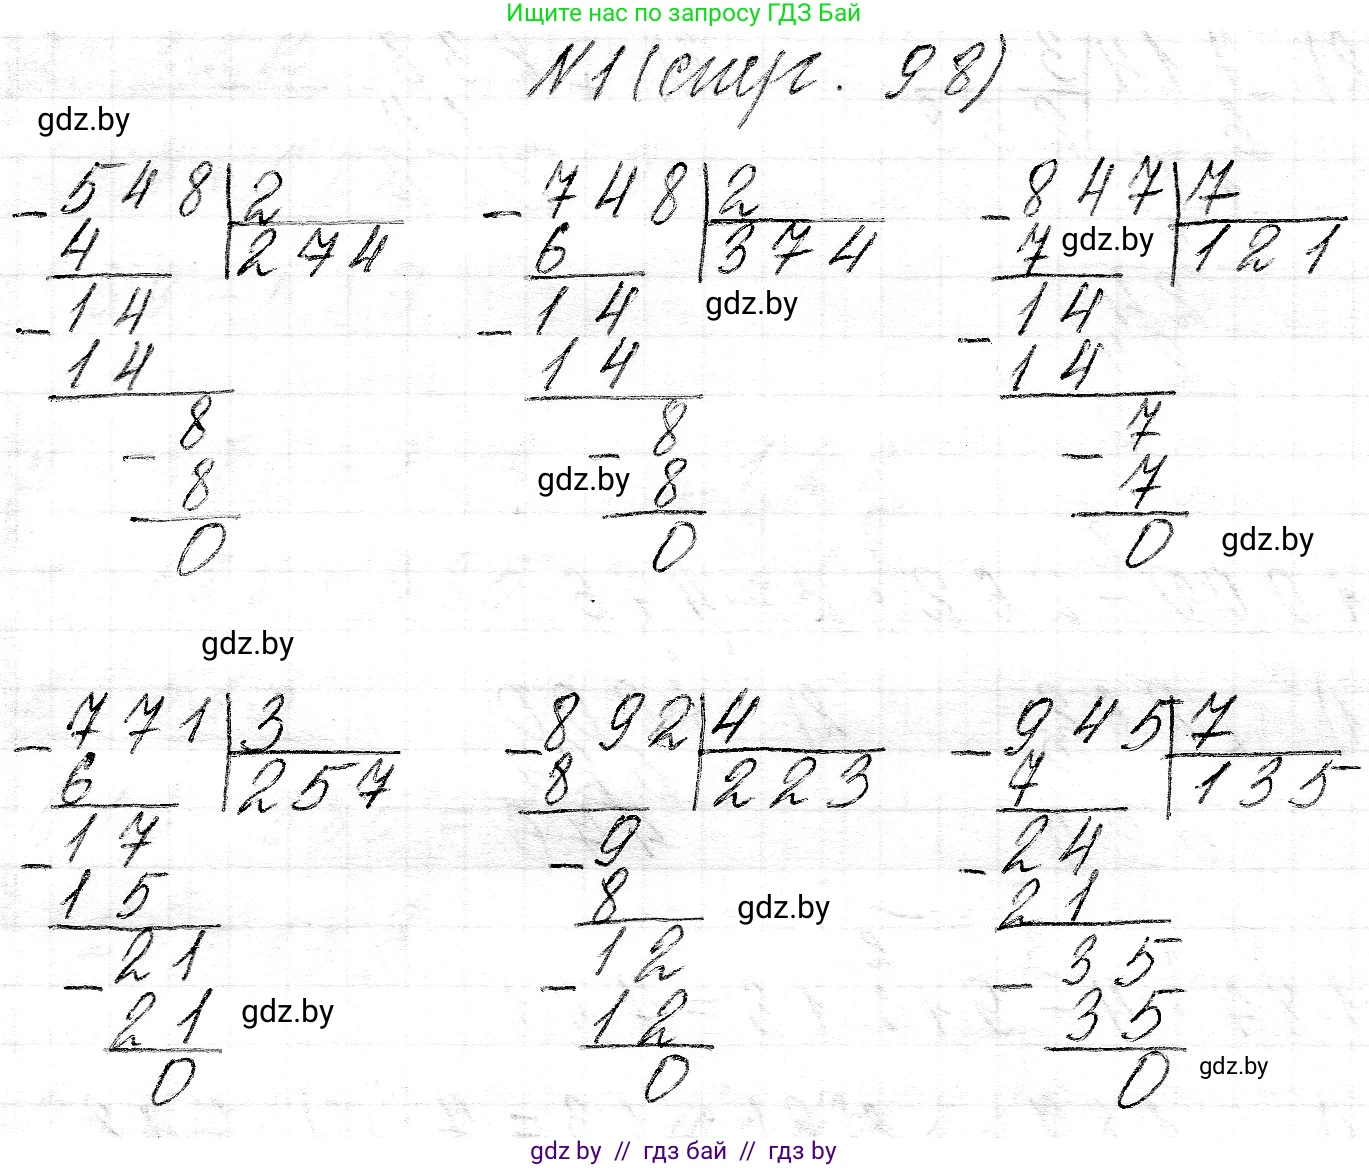 Ищите нас по запросу ГДЗ Бай
N1 (стр. 98)
gdz.by
548 2 748 2 847 7
4 274 6 374 7 gdz.by 121
14 14 gdz.by 14
14 14 14
8 8 7
8 gdz.by 8 7
0 0 0 gdz.by
gdz.by
771 3 892 4 945 7
6 257 8 223 7 135
17 9 24
15 8 gdz.by 21
21 12 35
21 gdz.by 12 35
0 0 0 gdz.by
gdz by // гдз бай // гдз by